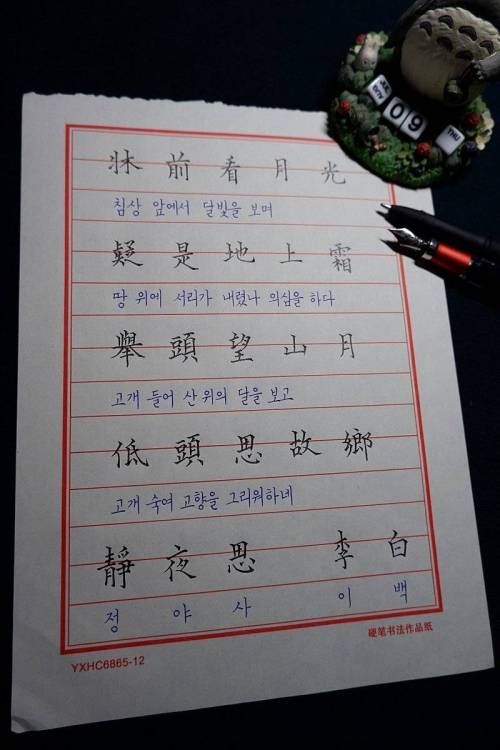 牀前看月光
침상 앞에서 달빛을 보며
疑是地上霜
땅 위에 서리가 내렸나 의심을 하다
舉頭望山月
고개 들어 산 위의 달을 보고
低頭思故鄉
고개 숙여 고향을 그리워하네
靜夜思 李白
정 야 사 이 백
硬笔书法作品纸
YXHC6865-12
09 THU